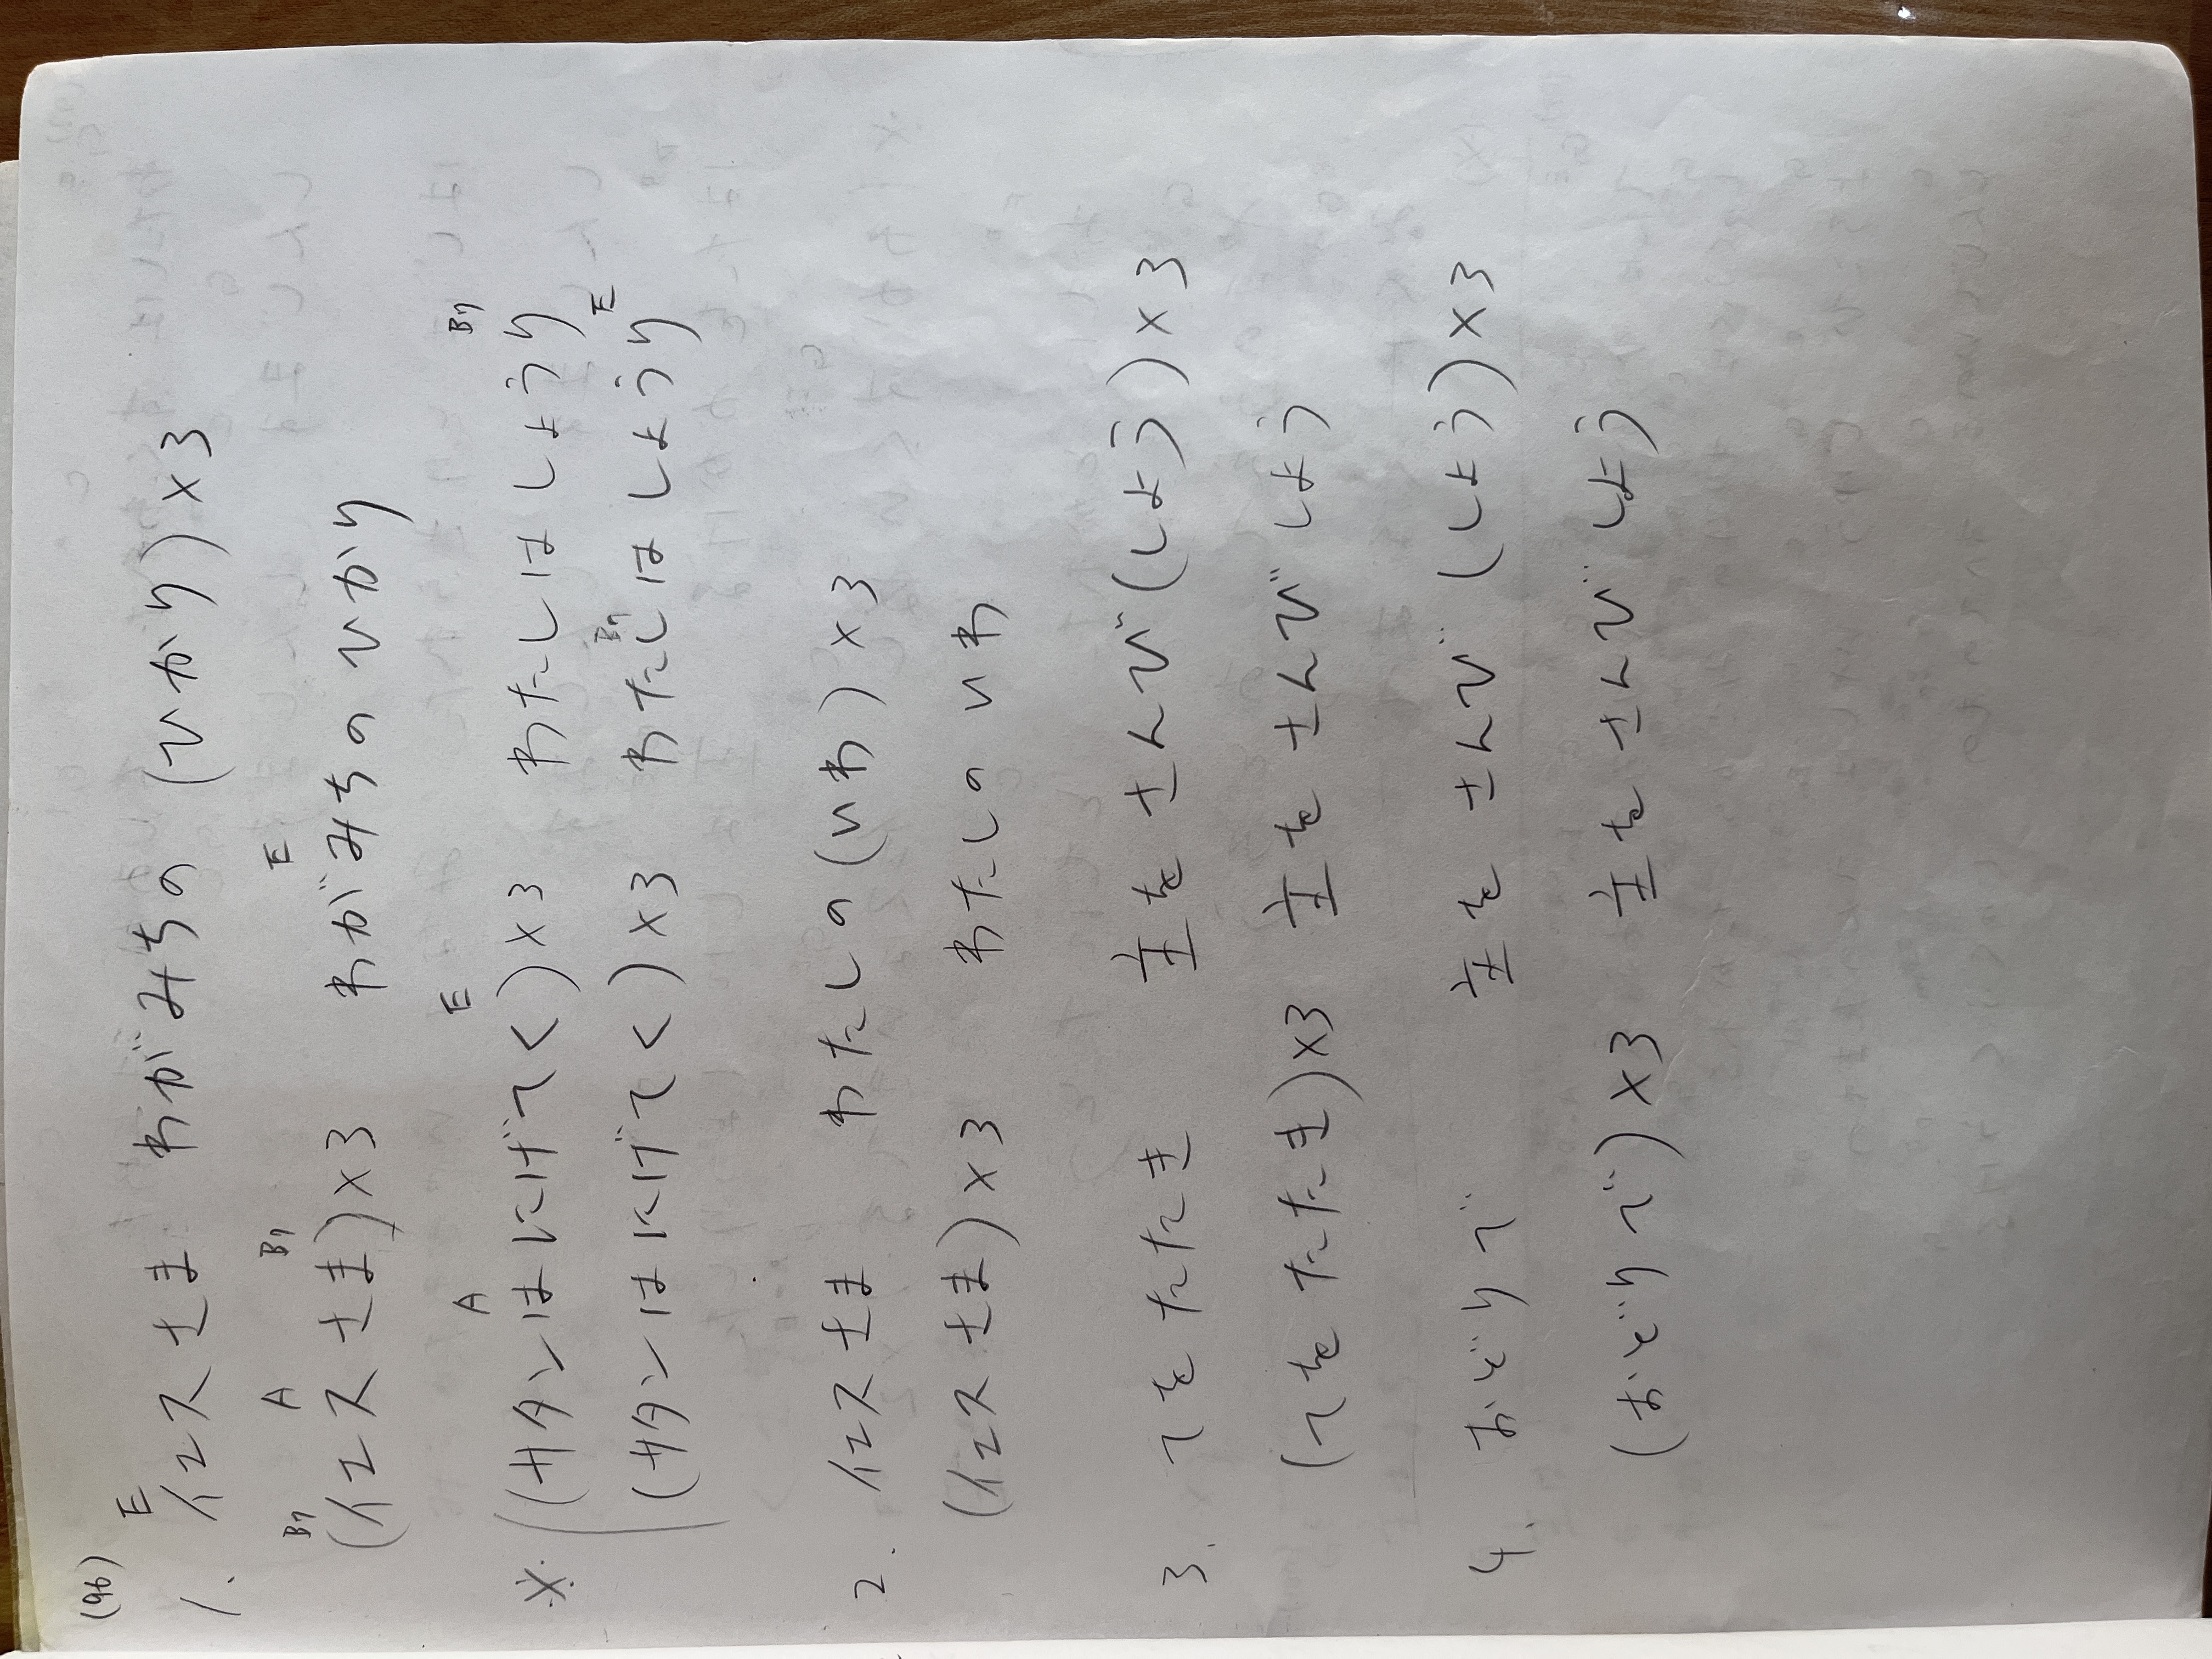 (96)
E
1. イエスさま わがみちの (ひかり)×3
B7 A B7 E
(イエスさま)×3 わがみちのひかり
A E B7
※ (サタンはにげてく)×3 わたしはしょうり
B7 E
(サタンはにげてく)×3 わたしはしょうり
2. イエスさま わたしの(いわ)×3
(イエスさま)×3 わたしのいわ
3. てをたたき 主をさんび(しよう)×3
(てをたたき)×3 主をさんびしよう
4. おどりで 主をさんび(しよう)×3
(おどりで)×3 主をさんびしよう